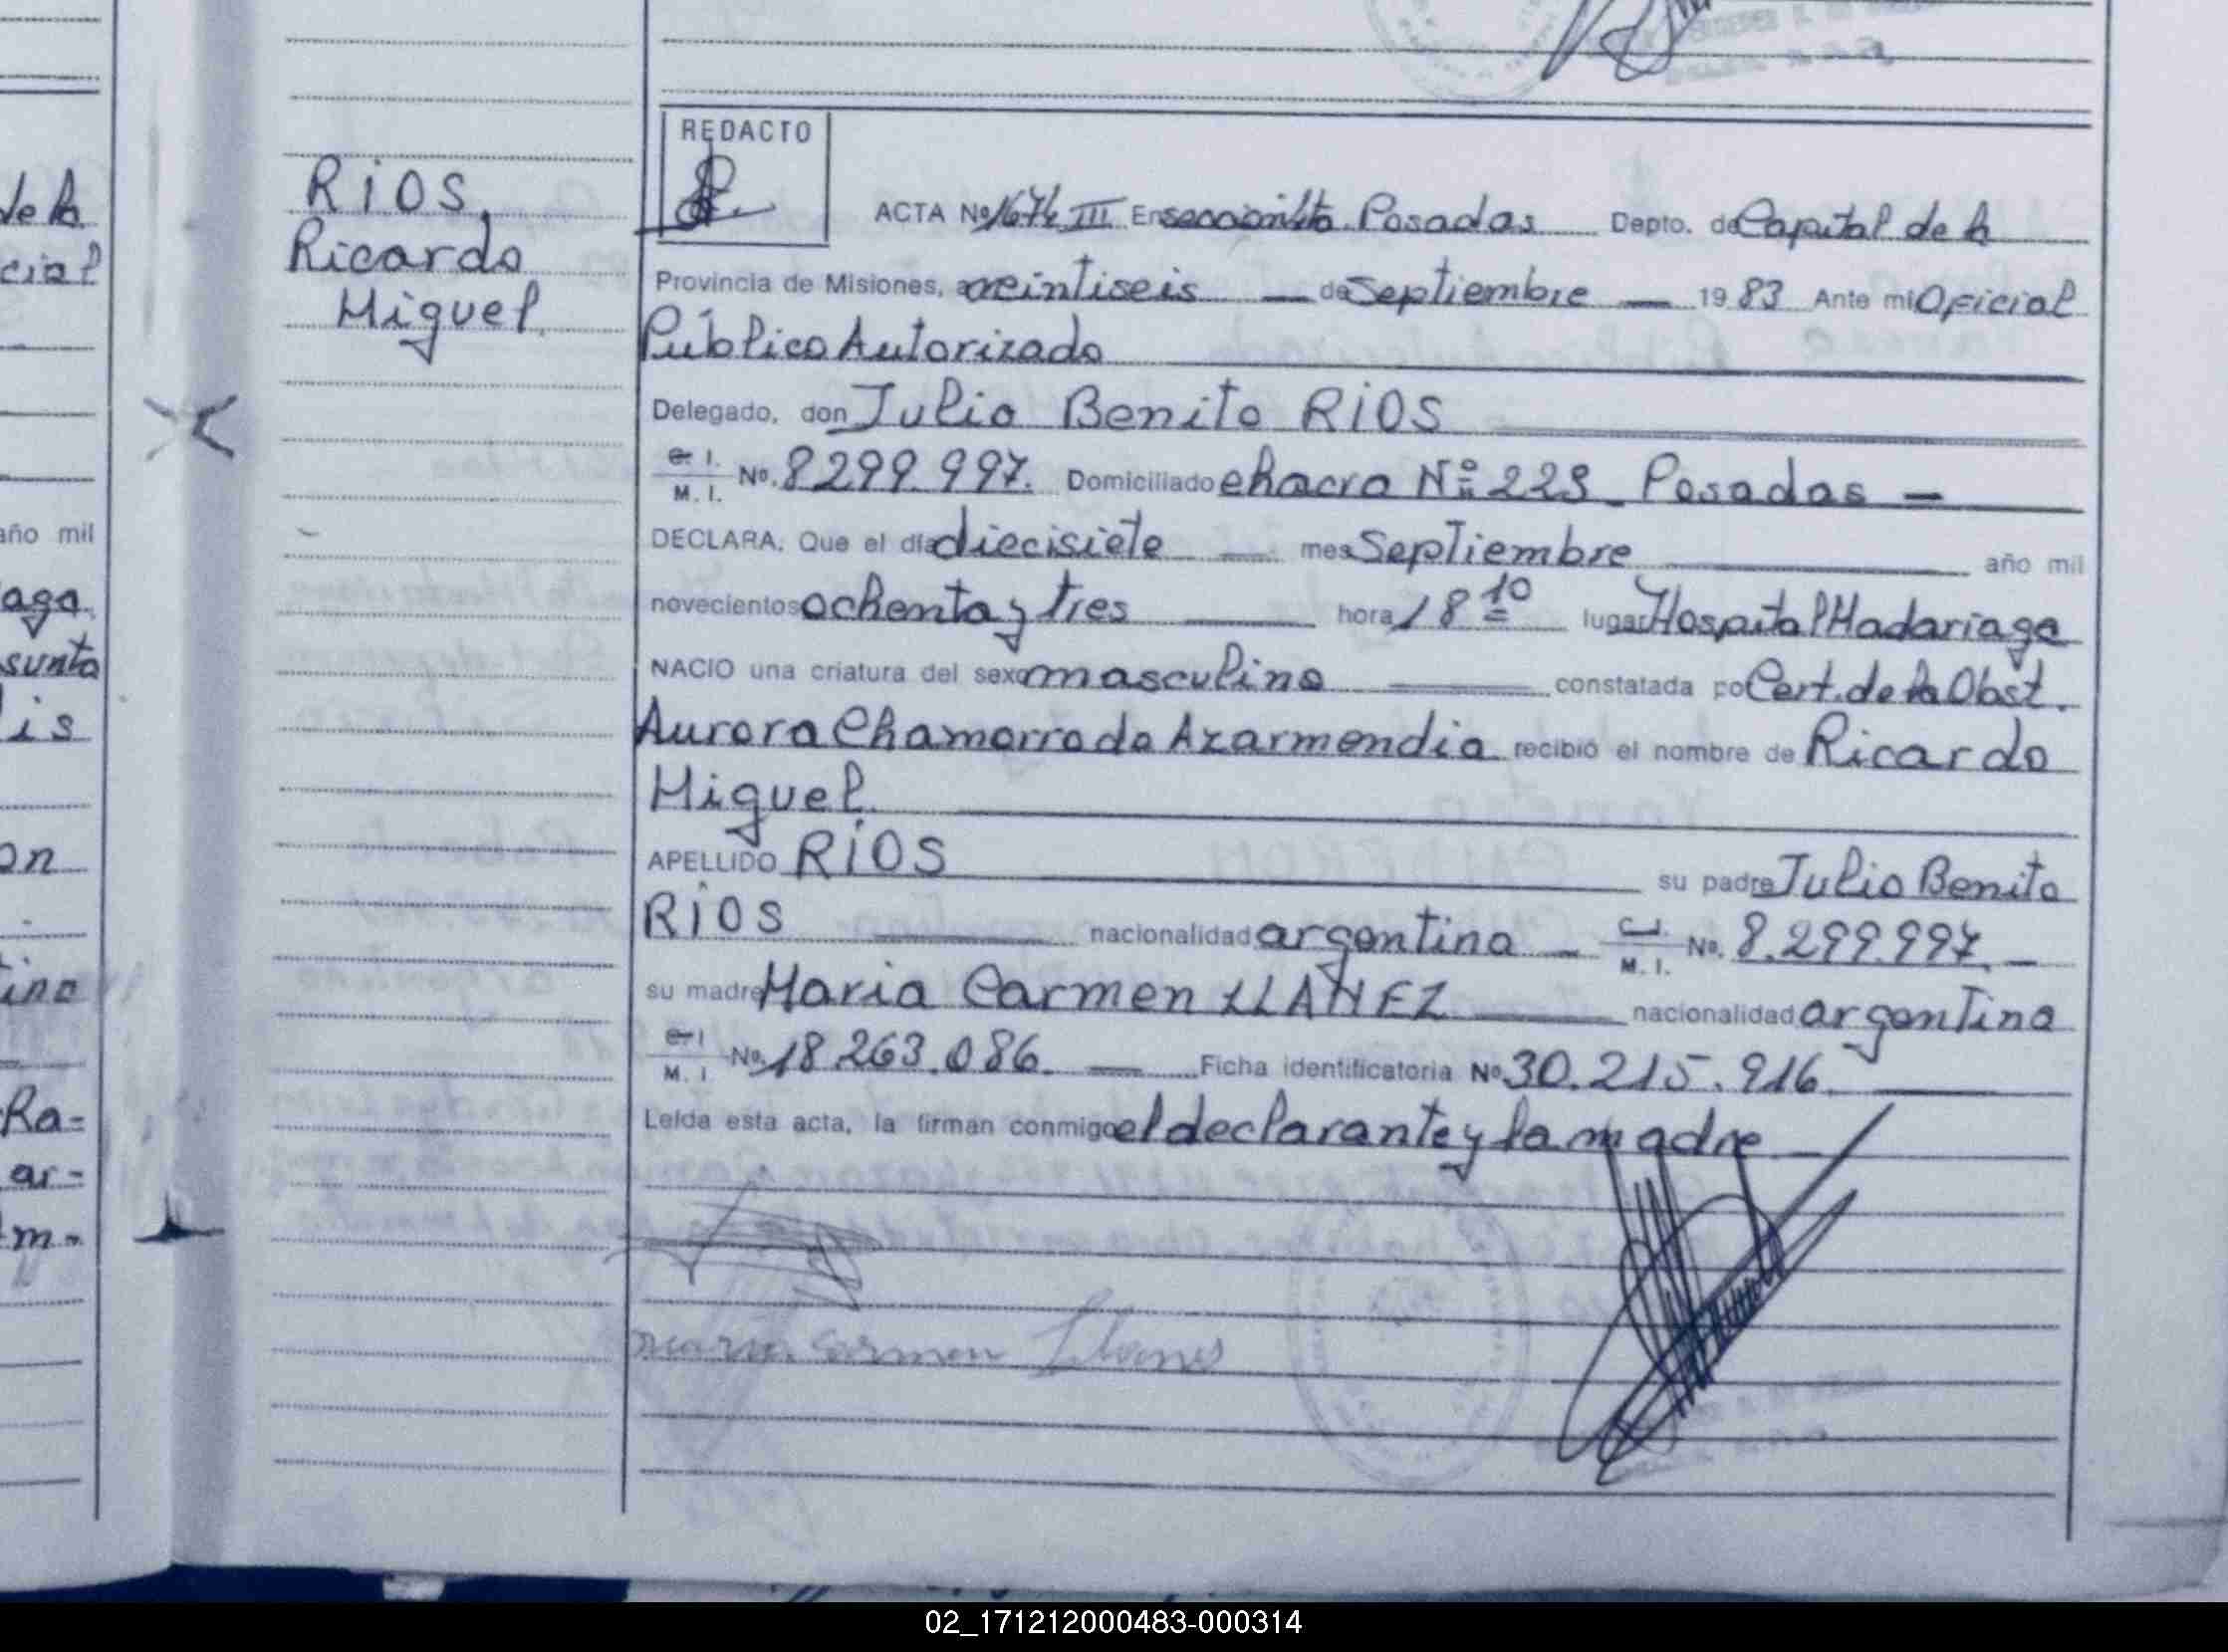 de la
cial
año mil
aga
sunto
lis
on
ino
Ra=
ar=
m=
RÍOS,
Ricardo
Miguel.
REDACTO
ACTA Nº 1674 III En sección 1ta Posadas Depto. de Capital de la
Provincia de Misiones, a veintiseis — de Septiembre — 19 83 Ante mi Oficial
Público Autorizado
Delegado, don Julio Benito RÍOS
C. I.
M. I. Nº. 8299.997. Domiciliado chacra Nº 223 - Posadas —
DECLARA: Que el día diecisiete — mes Septiembre — año mil
novecientos ochenta y tres — hora 18 10 lugar Hospital Madariaga
NACIO una criatura del sexo masculino — constatada por Cert. de la Obst.
Aurora Chamorro de Azarmendia recibió el nombre de Ricardo
Miguel.
APELLIDO RÍOS su padre Julio Benito
RÍOS — nacionalidad argentina — C.I.
M. I. Nº. 8.299.997. —
su madre Maria Carmen LLANEZ — nacionalidad argentina
C. I
M. I Nº. 18.263.086. — Ficha identificatoria Nº 30.215.916.
Leída esta acta, la firman conmigo el declarante y la madre
Maria Carmen Llanes
02_171212000483-000314